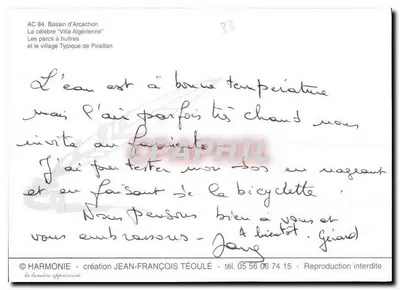 AC 84. Bassin d'Arcachon
La célèbre "Villa Algérienne"
Les parcs à huîtres
et le village Typique de Piraillan
33
L'eau est à bonne température
mais l'air parfois très chaud nous
invite au farniente.
J'ai pu tester mon dos en nageant
et en faisant de la bicyclette.
Nous pensons bien à vous et
vous embrassons - A bientôt. Gérard
© HARMONIE - création JEAN-FRANÇOIS TÉOULE - tél. 05 56 06 74 15 - Reproduction interdite
la lumière apprivoisée